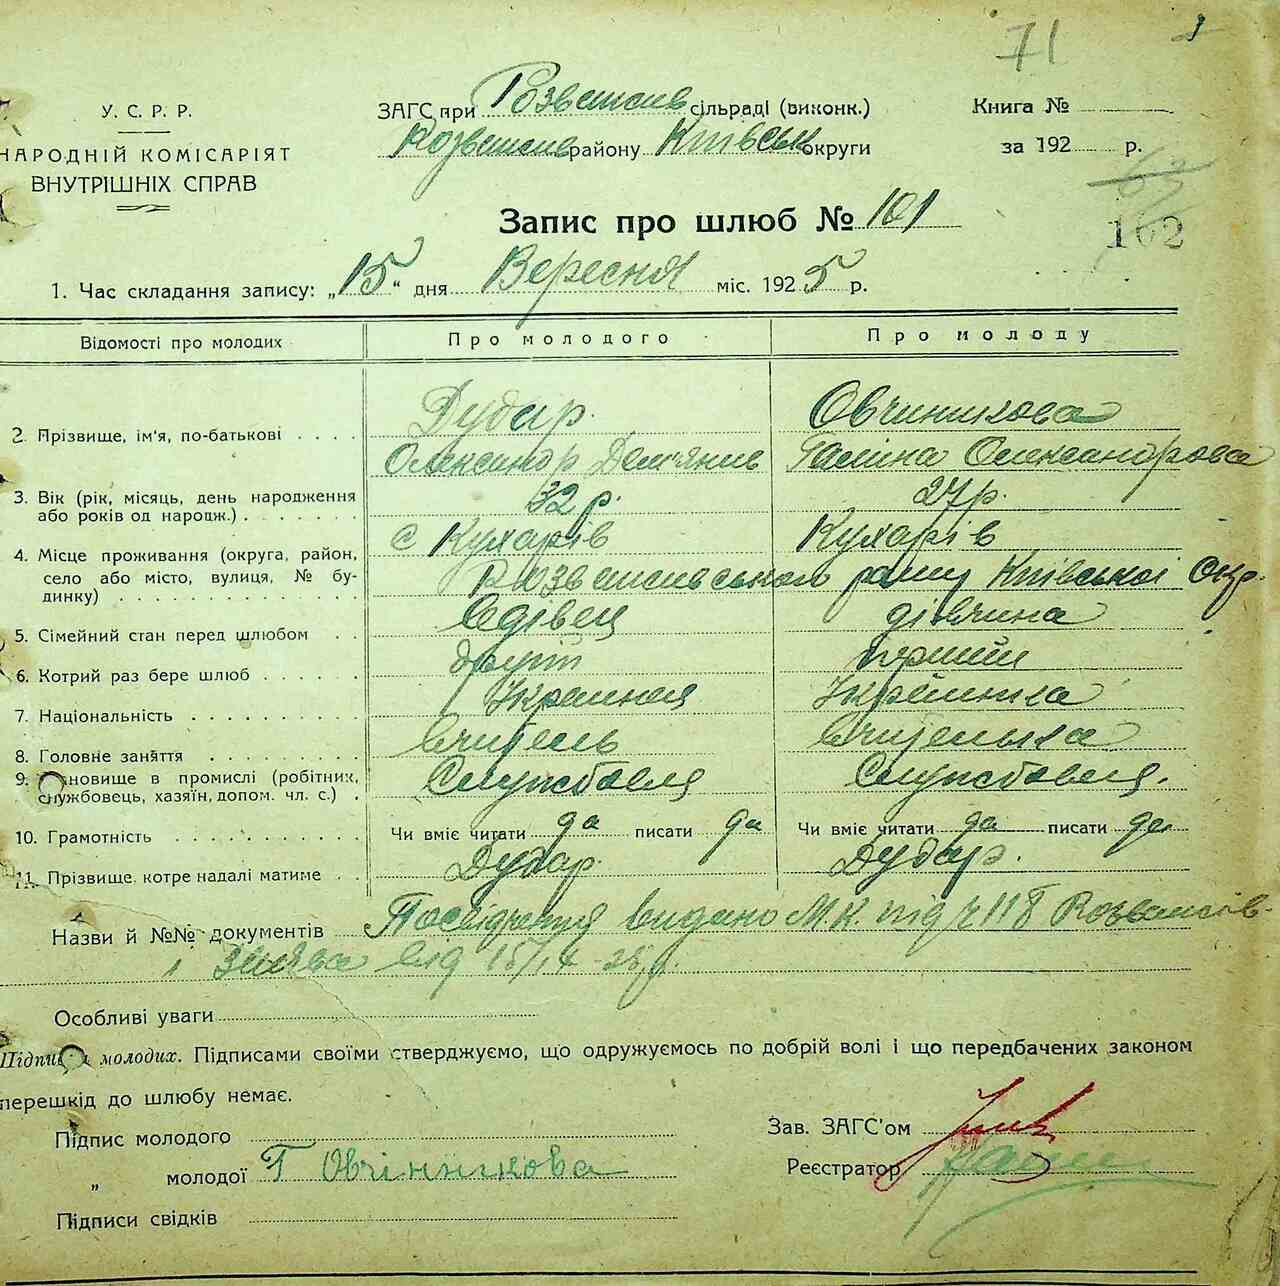 71
У. С. Р. Р.
НАРОДНІЙ КОМІСАРІЯТ
ВНУТРІШНІХ СПРАВ
ЗАГС при Розважив сільраді (виконк.)
Розважив району Київськ округи
Книга №
за 192 р.
63
102
Запис про шлюб № 101
1. Час складання запису: „15“ дня Вересня міс. 1925 р.
Відомості про молодих Про молодого Про молоду
2. Прізвище, ім'я, по-батькові Дудар Овчинникова
Олександр Дем'янив Галина Олександрова
3. Вік (рік, місяць, день народження 32 р. 27 р.
або років од народж.)
4. Місце проживання (округа, район, с Кухарів Кухарів
село або місто, вулиця, № бу- Розважівського райну Київської Окр.
динку)
5. Сімейний стан перед шлюбом Вдівец дівчина
6. Котрий раз бере шлюб другий перший
7. Національність Українец Українка
8. Головне заняття Вчитель Вчителька
9. Становище в промислі (робітник, Службовец Службовец.
службовець, хазяїн, допом. чл. с.)
10. Грамотність Чи вміє читати да писати да Чи вміє читати да писати да
11. Прізвище, котре надалі матиме Дудар. Дудар.
Назви й №№ документів Посвідчення видано М.К. під ч 118
від
Особливі уваги
Підписи молодих. Підписами своїми стверджуємо, що одружуємось по добрій волі і що передбачених законом
перешкід до шлюбу немає.
Підпис молодого
„ молодої Г Овчінникова
Підписи свідків
Зав. ЗАГС'ом
Реєстратор